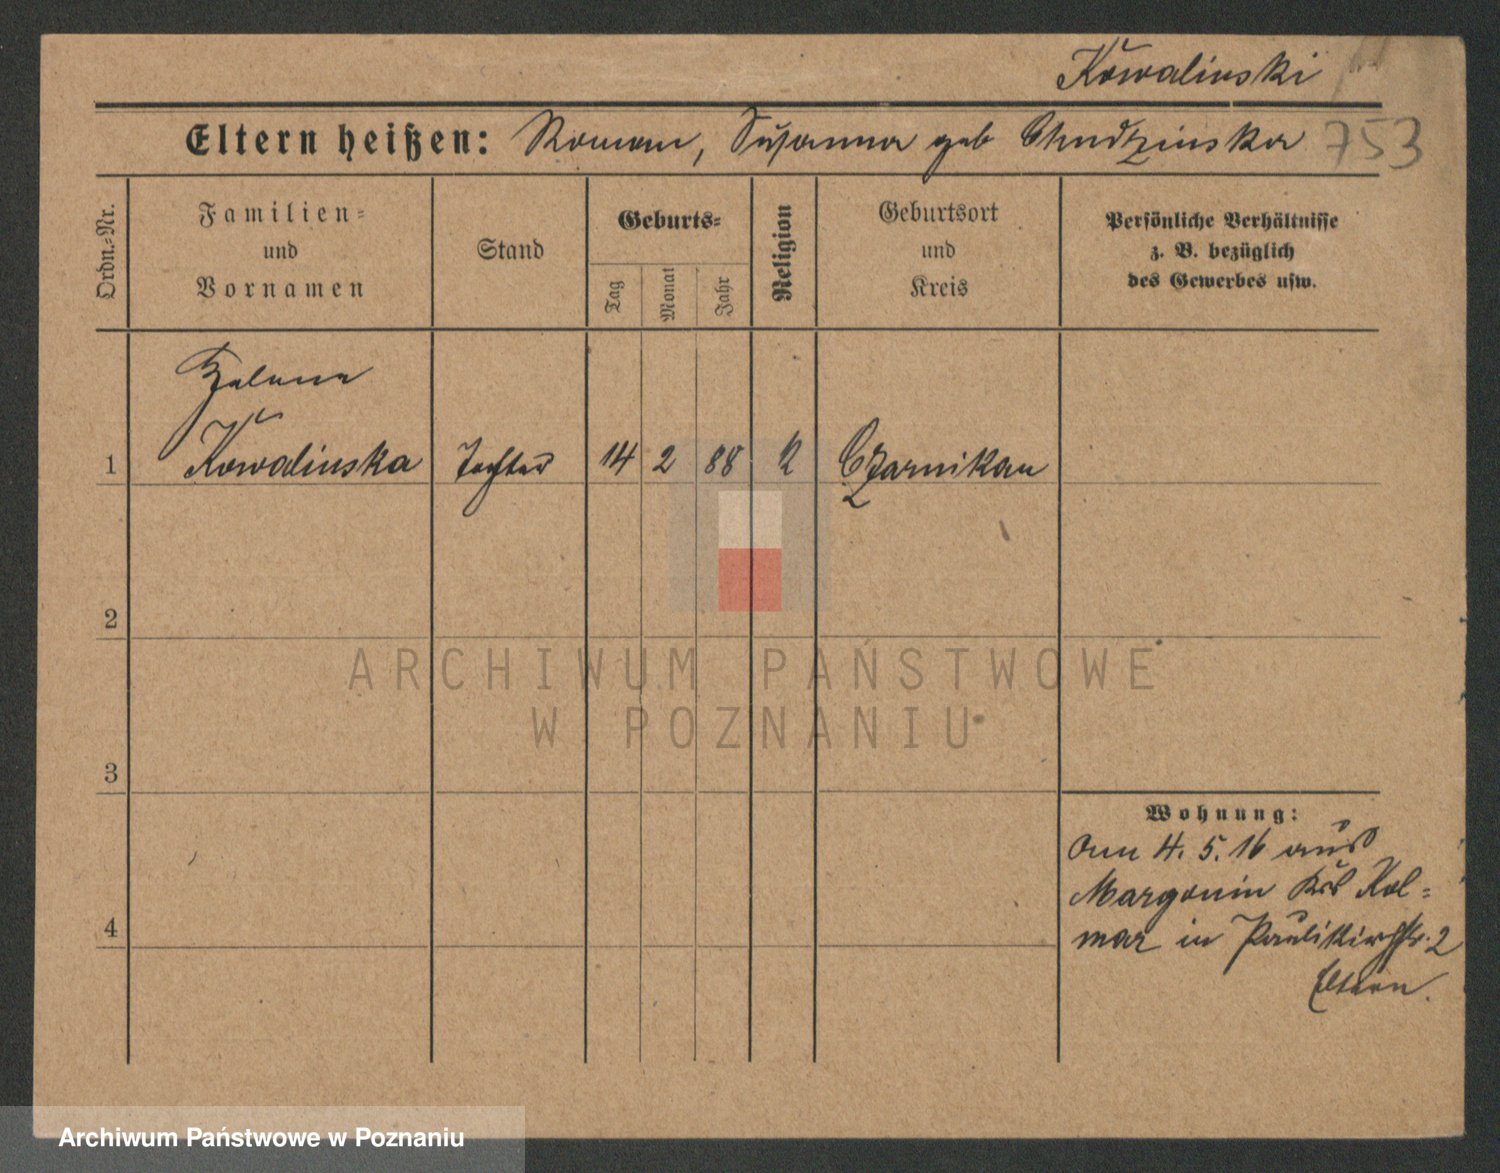 Kowalinski
Eltern heißen: Roman, Susanna geb Chudzinska 753
Ordn.-Nr.
Familien- und Vornamen
Stand
Geburts-
Tag
Monat
Jahr
Religion
Geburtsort und Kreis
Persönliche Verhältnisse
z. B. bezüglich
des Gewerbes usw.
Helene
1 Kowalinska Tochter 14 2 88 k Czarnikau
2
ARCHIWUM PAŃSTWOWE
W POZNANIU
3
Wohnung:
Am 4. 5. 16 aus
Margonin Krs Kol-
mar in Paulikirchstr. 2
4
Eltern.
Archiwum Państwowe w Poznaniu